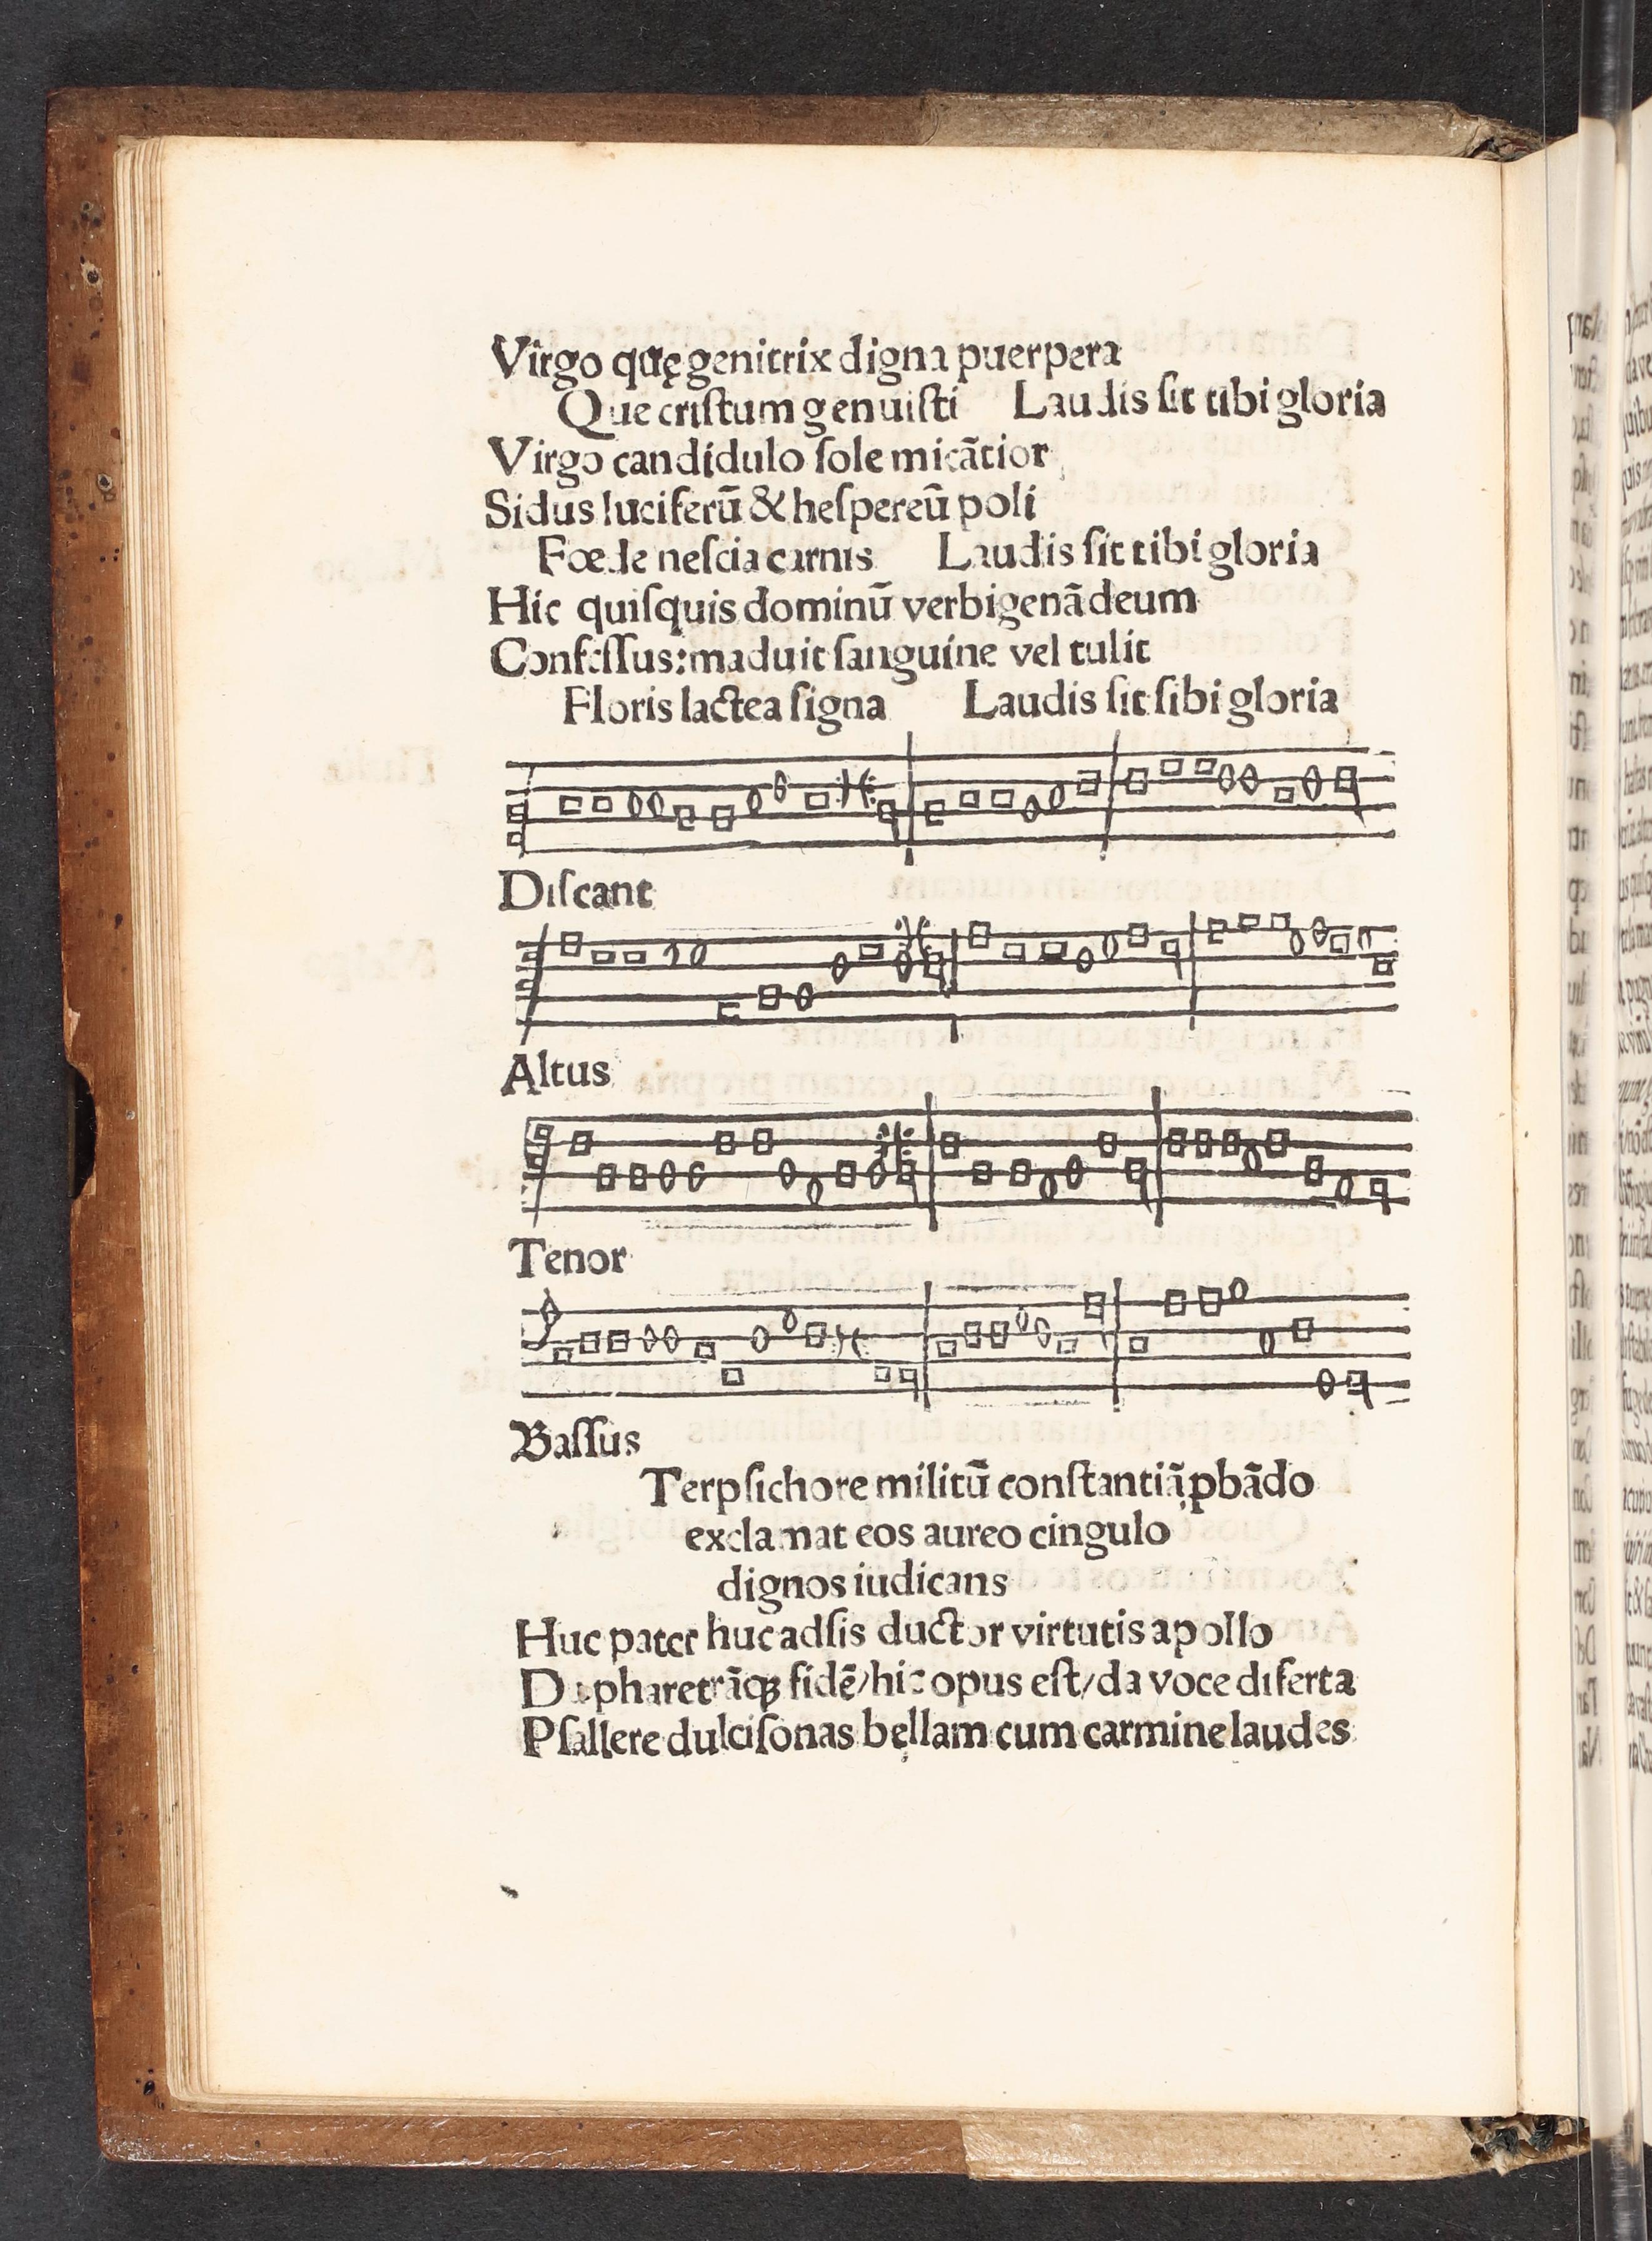 Virgo quę genitrix digna puerpera
Que criſtum genuiſti Laudis ſit tibi gloria
Virgo candidulo ſole micātior
Sidus luciferū & heſpereū poli
Fœde neſcia carnis Laudis ſit tibi gloria
Hic quiſquis dominū verbigenā deum
Confeſſus: maduit ſanguine vel tulit
Floris lactea ſigna Laudis ſit ſibi gloria
Diſcant
Altus
Tenor
Baſſus
Terpſichore militū conſtantiā ꝓbādo
exclamat eos aureo cingulo
dignos iudicans
Huc pater huc adſis ductor virtutis apollo
Da pharetrāqꝫ fidē/hic opus eſt/da voce diſerta
Pſallere dulciſonas bęllam cum carmine laudes